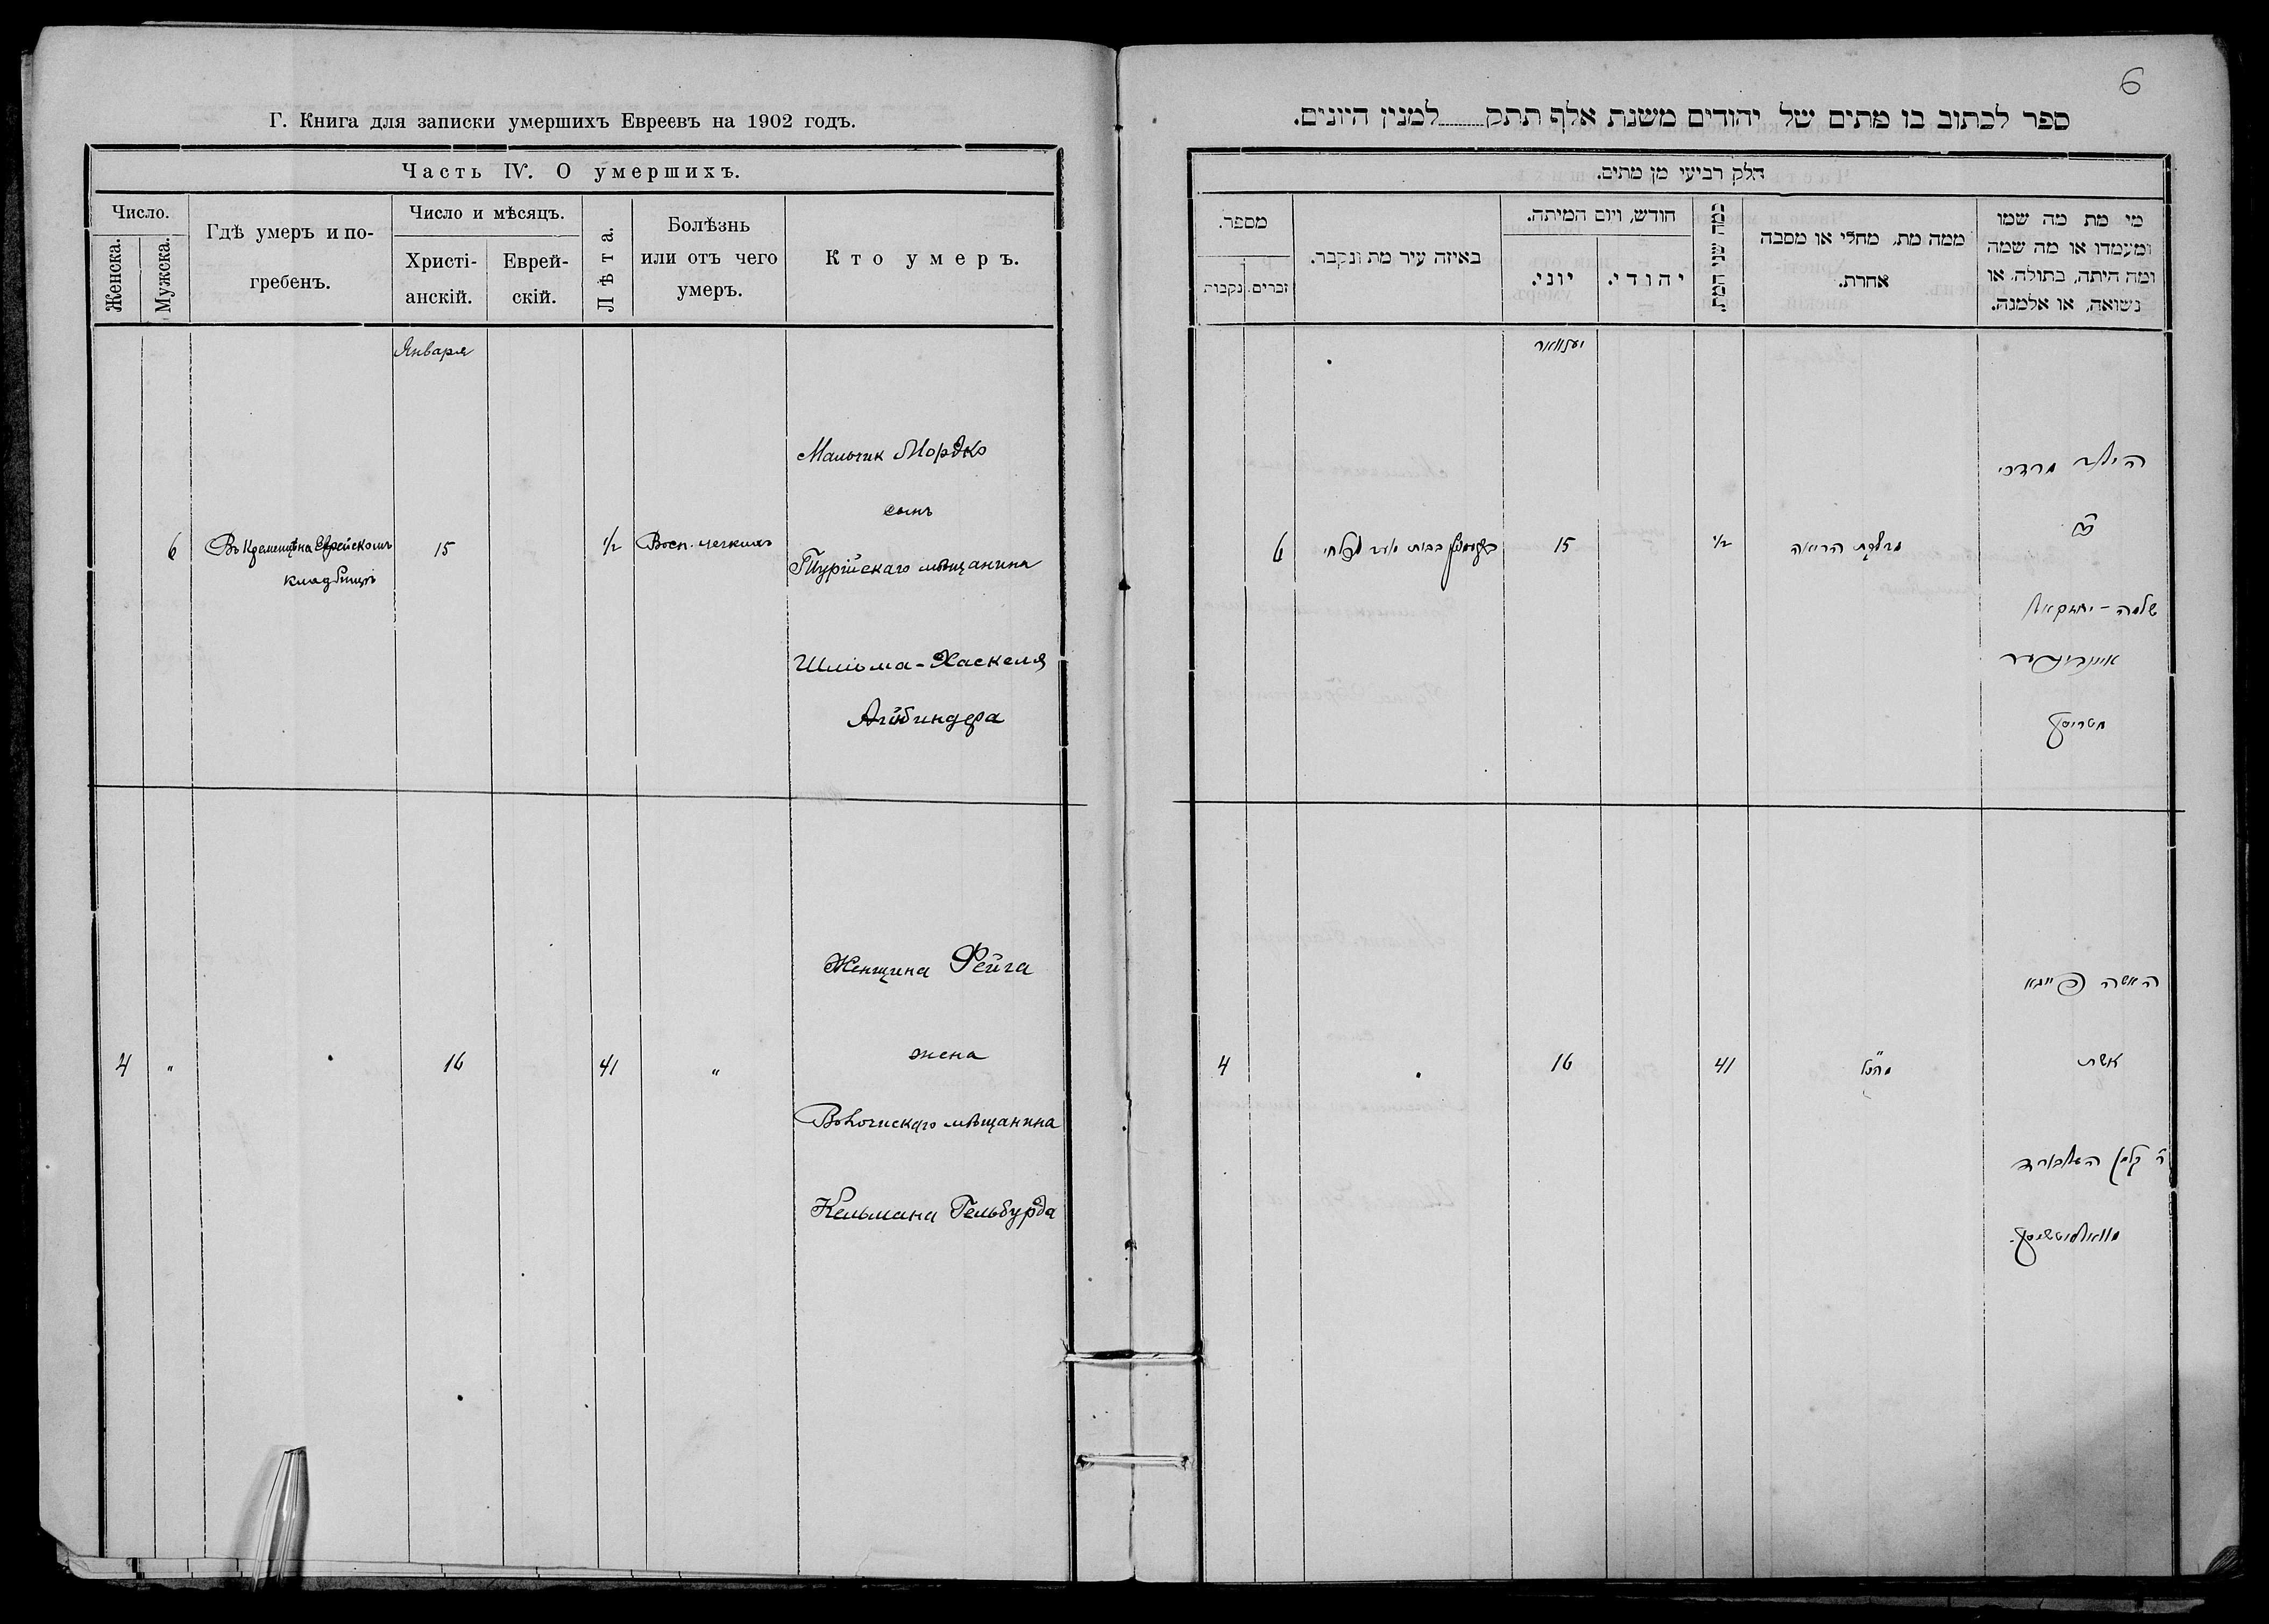 Г. Книга для записки умершихъ Евреевъ на 1902 годъ.
Часть IV. О умершихъ.
Число.
Женска.
Мужска.
Гдѣ умеръ и по-
гребенъ.
Число и мѣсяцъ.
Христі-
анскій.
Еврей-
скій.
Лѣта.
Болѣзнь
или отъ чего
умеръ.
Кто умеръ.
Января
6
Въ Кременцѣ на Еврейскомъ
кладбищѣ
15
1/2
Восп. легкихъ
Мальчик Мордко
сынъ
Турійскаго мѣщанина
Шліома-Хаскеля
Айнбиндера
4
"
16
41
"
Женщина Фейга
жена
мѣщанина
Кельмана Гельбурда
6
ספר לכתוב בו מתים של יהודים משנת אלף תתק למנין היונים.
חלק רביעי מן מתים.
מספר.
נקבות
זכרים.
באיזה עיר מת ונקבר.
חודש, ויום המיתה.
יוני.
יהודי.
כמה שני המת.
ממה מת, מחלי או מסבה
אחרת.
מי מת מה שמו
ומעמדו או מה שמה
ומה היתה, בתולה, או
נשואה, או אלמנה.
יענוואר
6
15
1/2
מדלקת הריאה
הילד מרדכי
שלמה-יחזקאל
איינבינדער
4
16
41
הנ"ל
האשה פייגא
אשת
ר' קלמן העלבורד